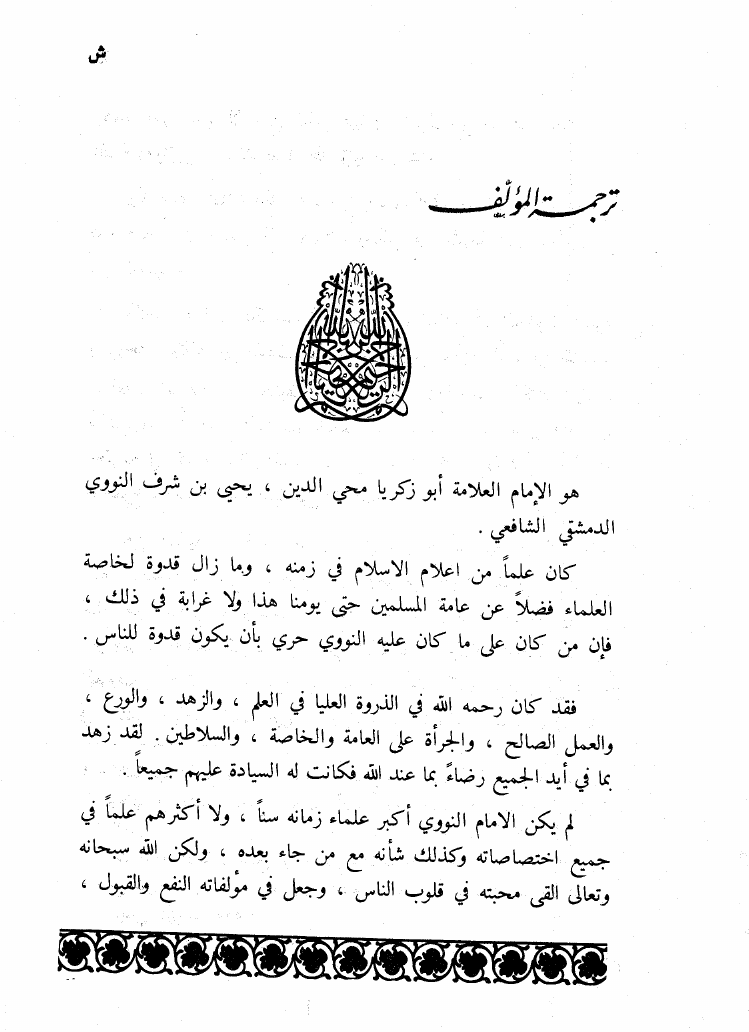 ش
ترجمة المؤلّف
بسم الله الرحمن الرحيم
هو الإمام العلامة أبو زكريا محي الدين ، يحيى بن شرف النووي
الدمشقي الشافعي .
كان علماً من اعلام الاسلام في زمنه ، وما زال قدوة لخاصة
العلماء فضلاً عن عامة المسلمين حتى يومنا هذا ولا غرابة في ذلك ،
فإن من كان على ما كان عليه النووي حري بأن يكون قدوة للناس .
فقد كان رحمه الله في الذروة العليا في العلم ، والزهد ، والورع ،
والعمل الصالح ، والجرأة على العامة والخاصة ، والسلاطين . لقد زهد
بما في أيد الجميع رضاءً بما عند الله فكانت له السيادة عليهم جميعاً .
لم يكن الامام النووي أكبر علماء زمانه سناً ، ولا أكثرهم علماً في
جميع اختصاصاته وكذلك شأنه مع من جاء بعده ، ولكن الله سبحانه
وتعالى القى محبته في قلوب الناس ، وجعل في مؤلفاته النفع والقبول ،